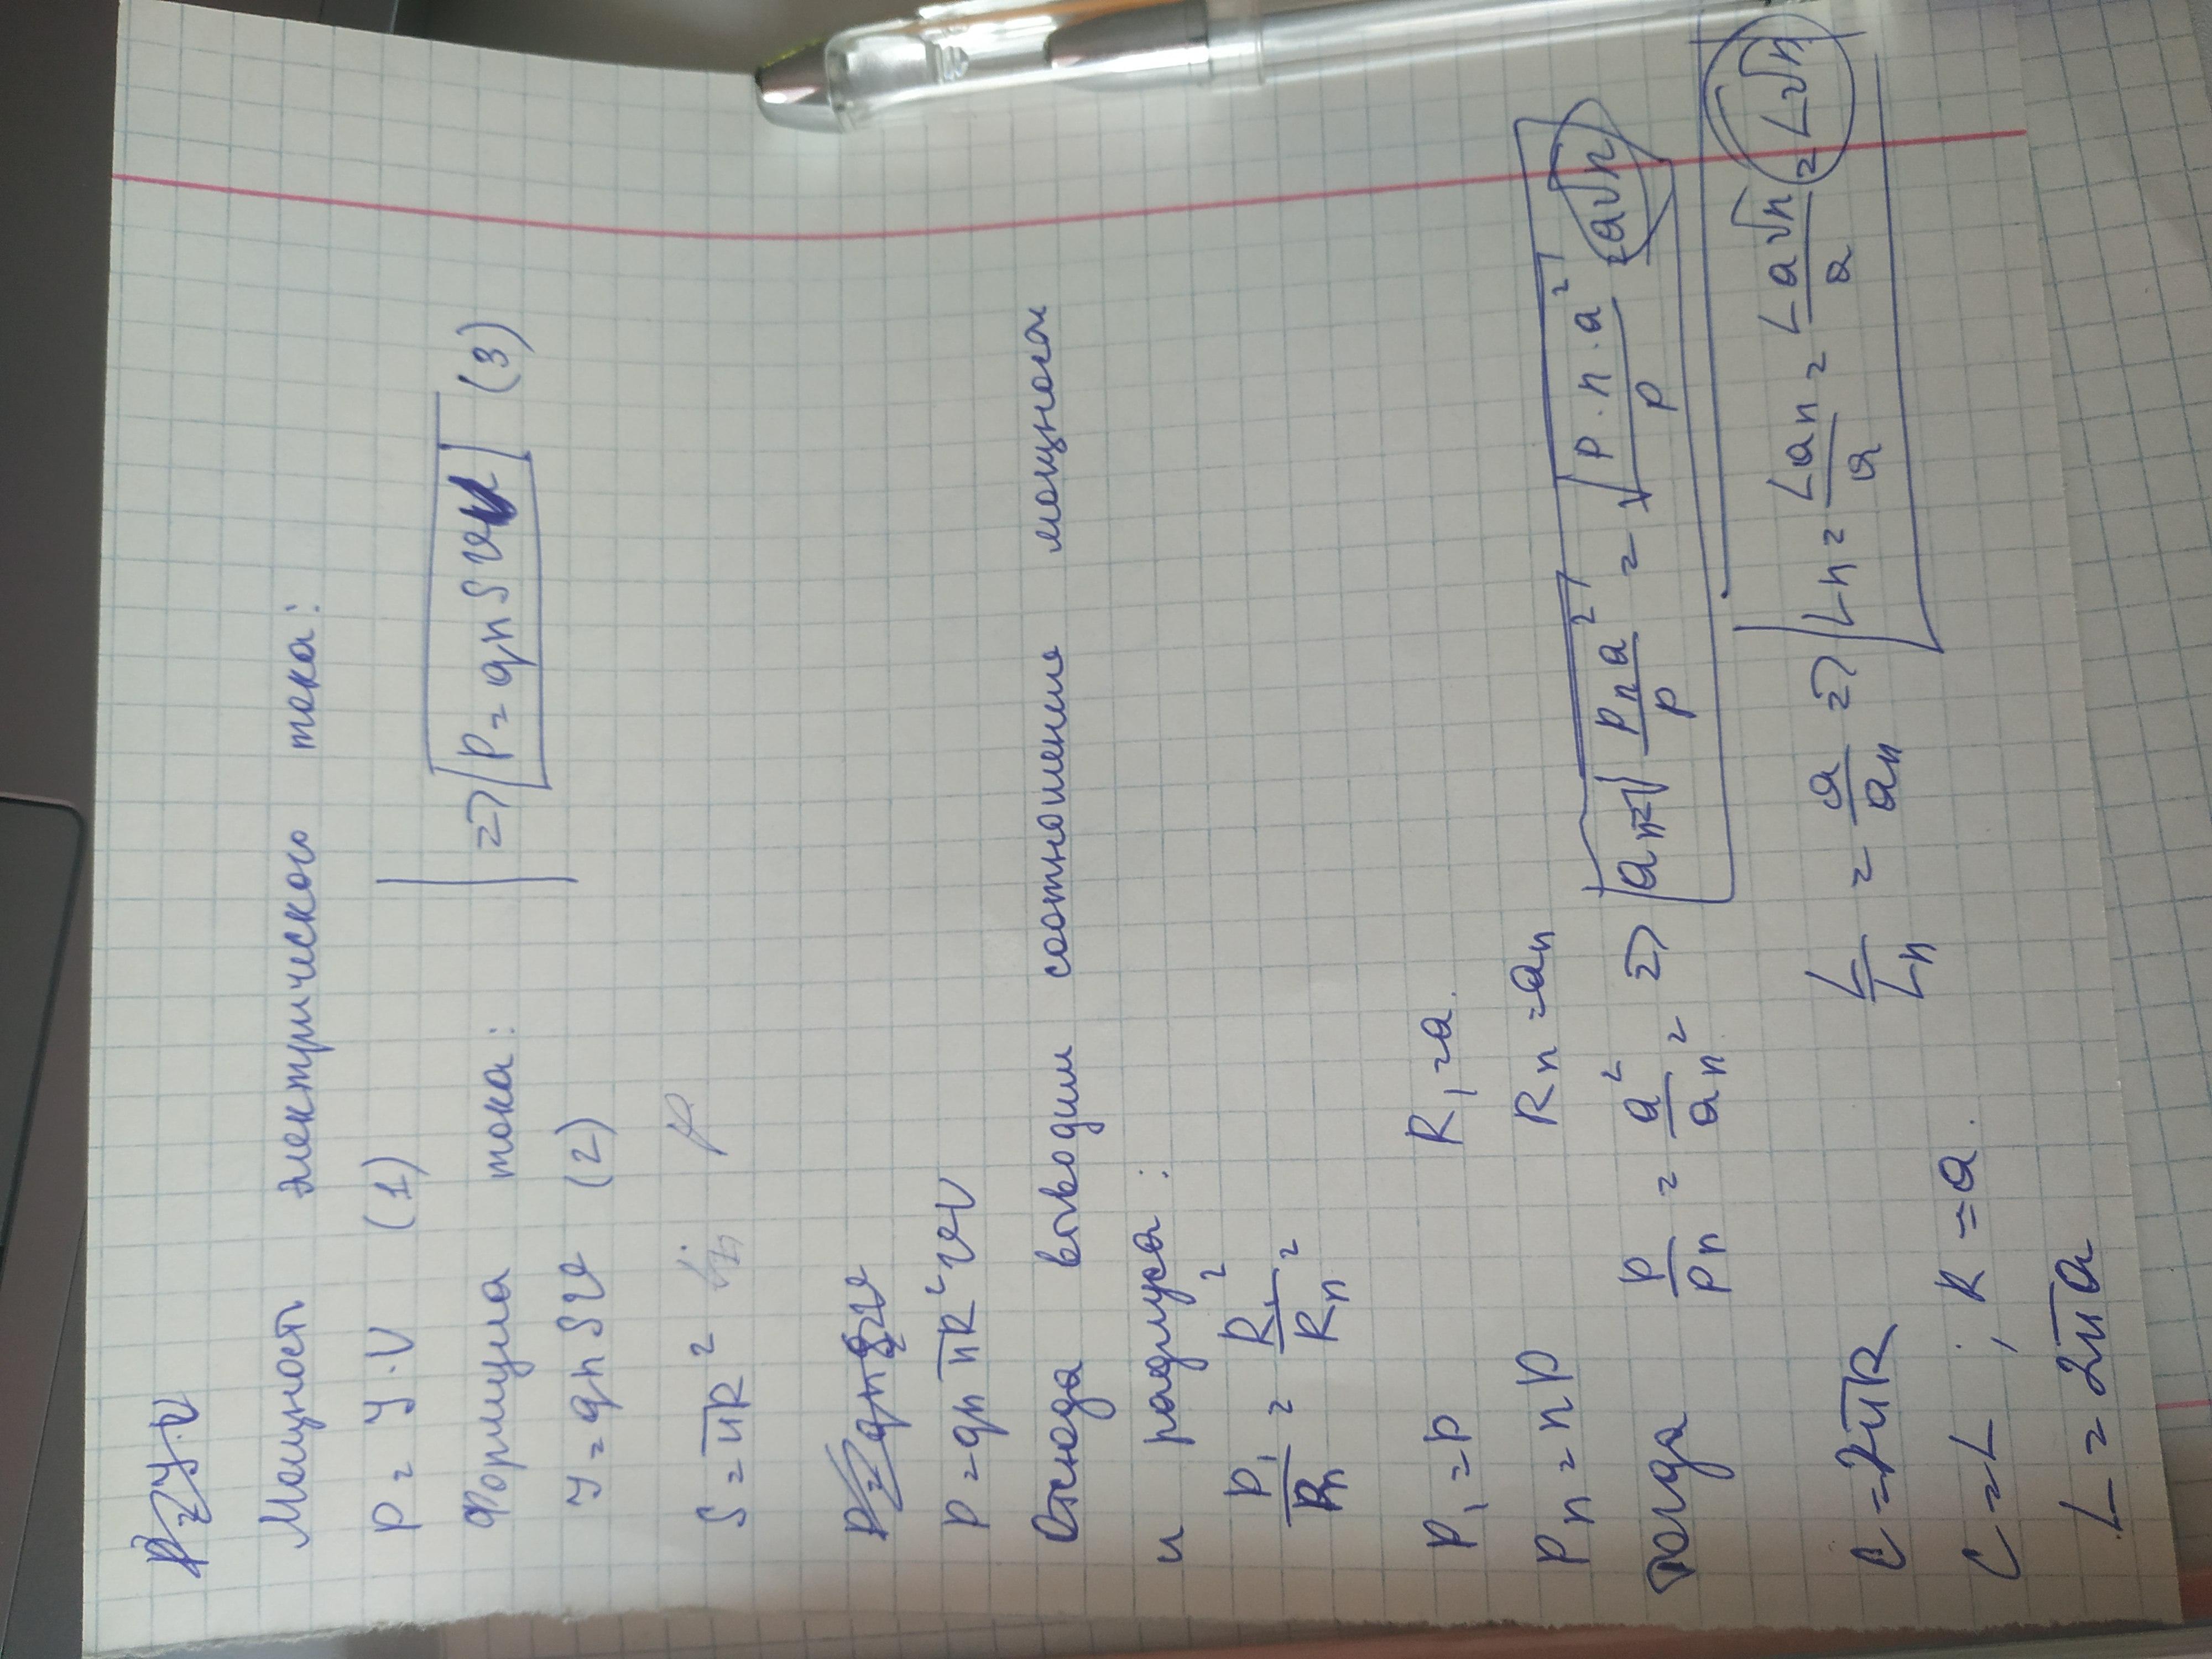 P = У·V
Мощность электрического тока:
P = У·V (1)
Формула тока:
У = qnSv (2)
=> P = qnSvV (3)
S = πR²
P = qnSv
P = qnπR²vV
Отсюда выводим соотношение мощности
и радиуса:
P₁/Pₙ = R₁²/Rₙ²
P₁ = P R₁ = a.
Pₙ = nP Rₙ = aₙ
тогда P/Pₙ = a²/aₙ² => aₙ = √(Pₙa²/P) = √(P·n·a²/P) = a√n
C = 2πR L/Lₙ = a/aₙ => Lₙ = Laₙ/a = La√n/a = L√n
C = L ; R = a.
L = 2πa